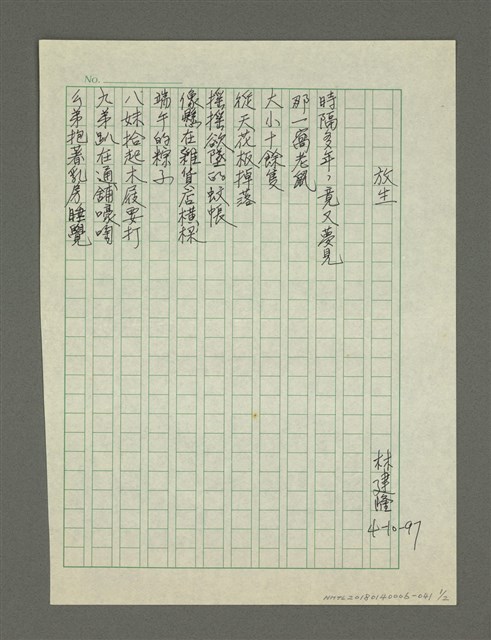 No.
放生
林建隆
4-10-97
時隔多年，竟又夢見
那一窩老鼠
大小十餘隻
從天花板掉落
搖搖欲墜的蚊帳
像懸在雜貨店橫樑
端午的粽子
八妹拾起木屐要打
九弟趴在通舖嚎啕
么弟抱著乳房睡覺
NMTL20180140006-041 1/2